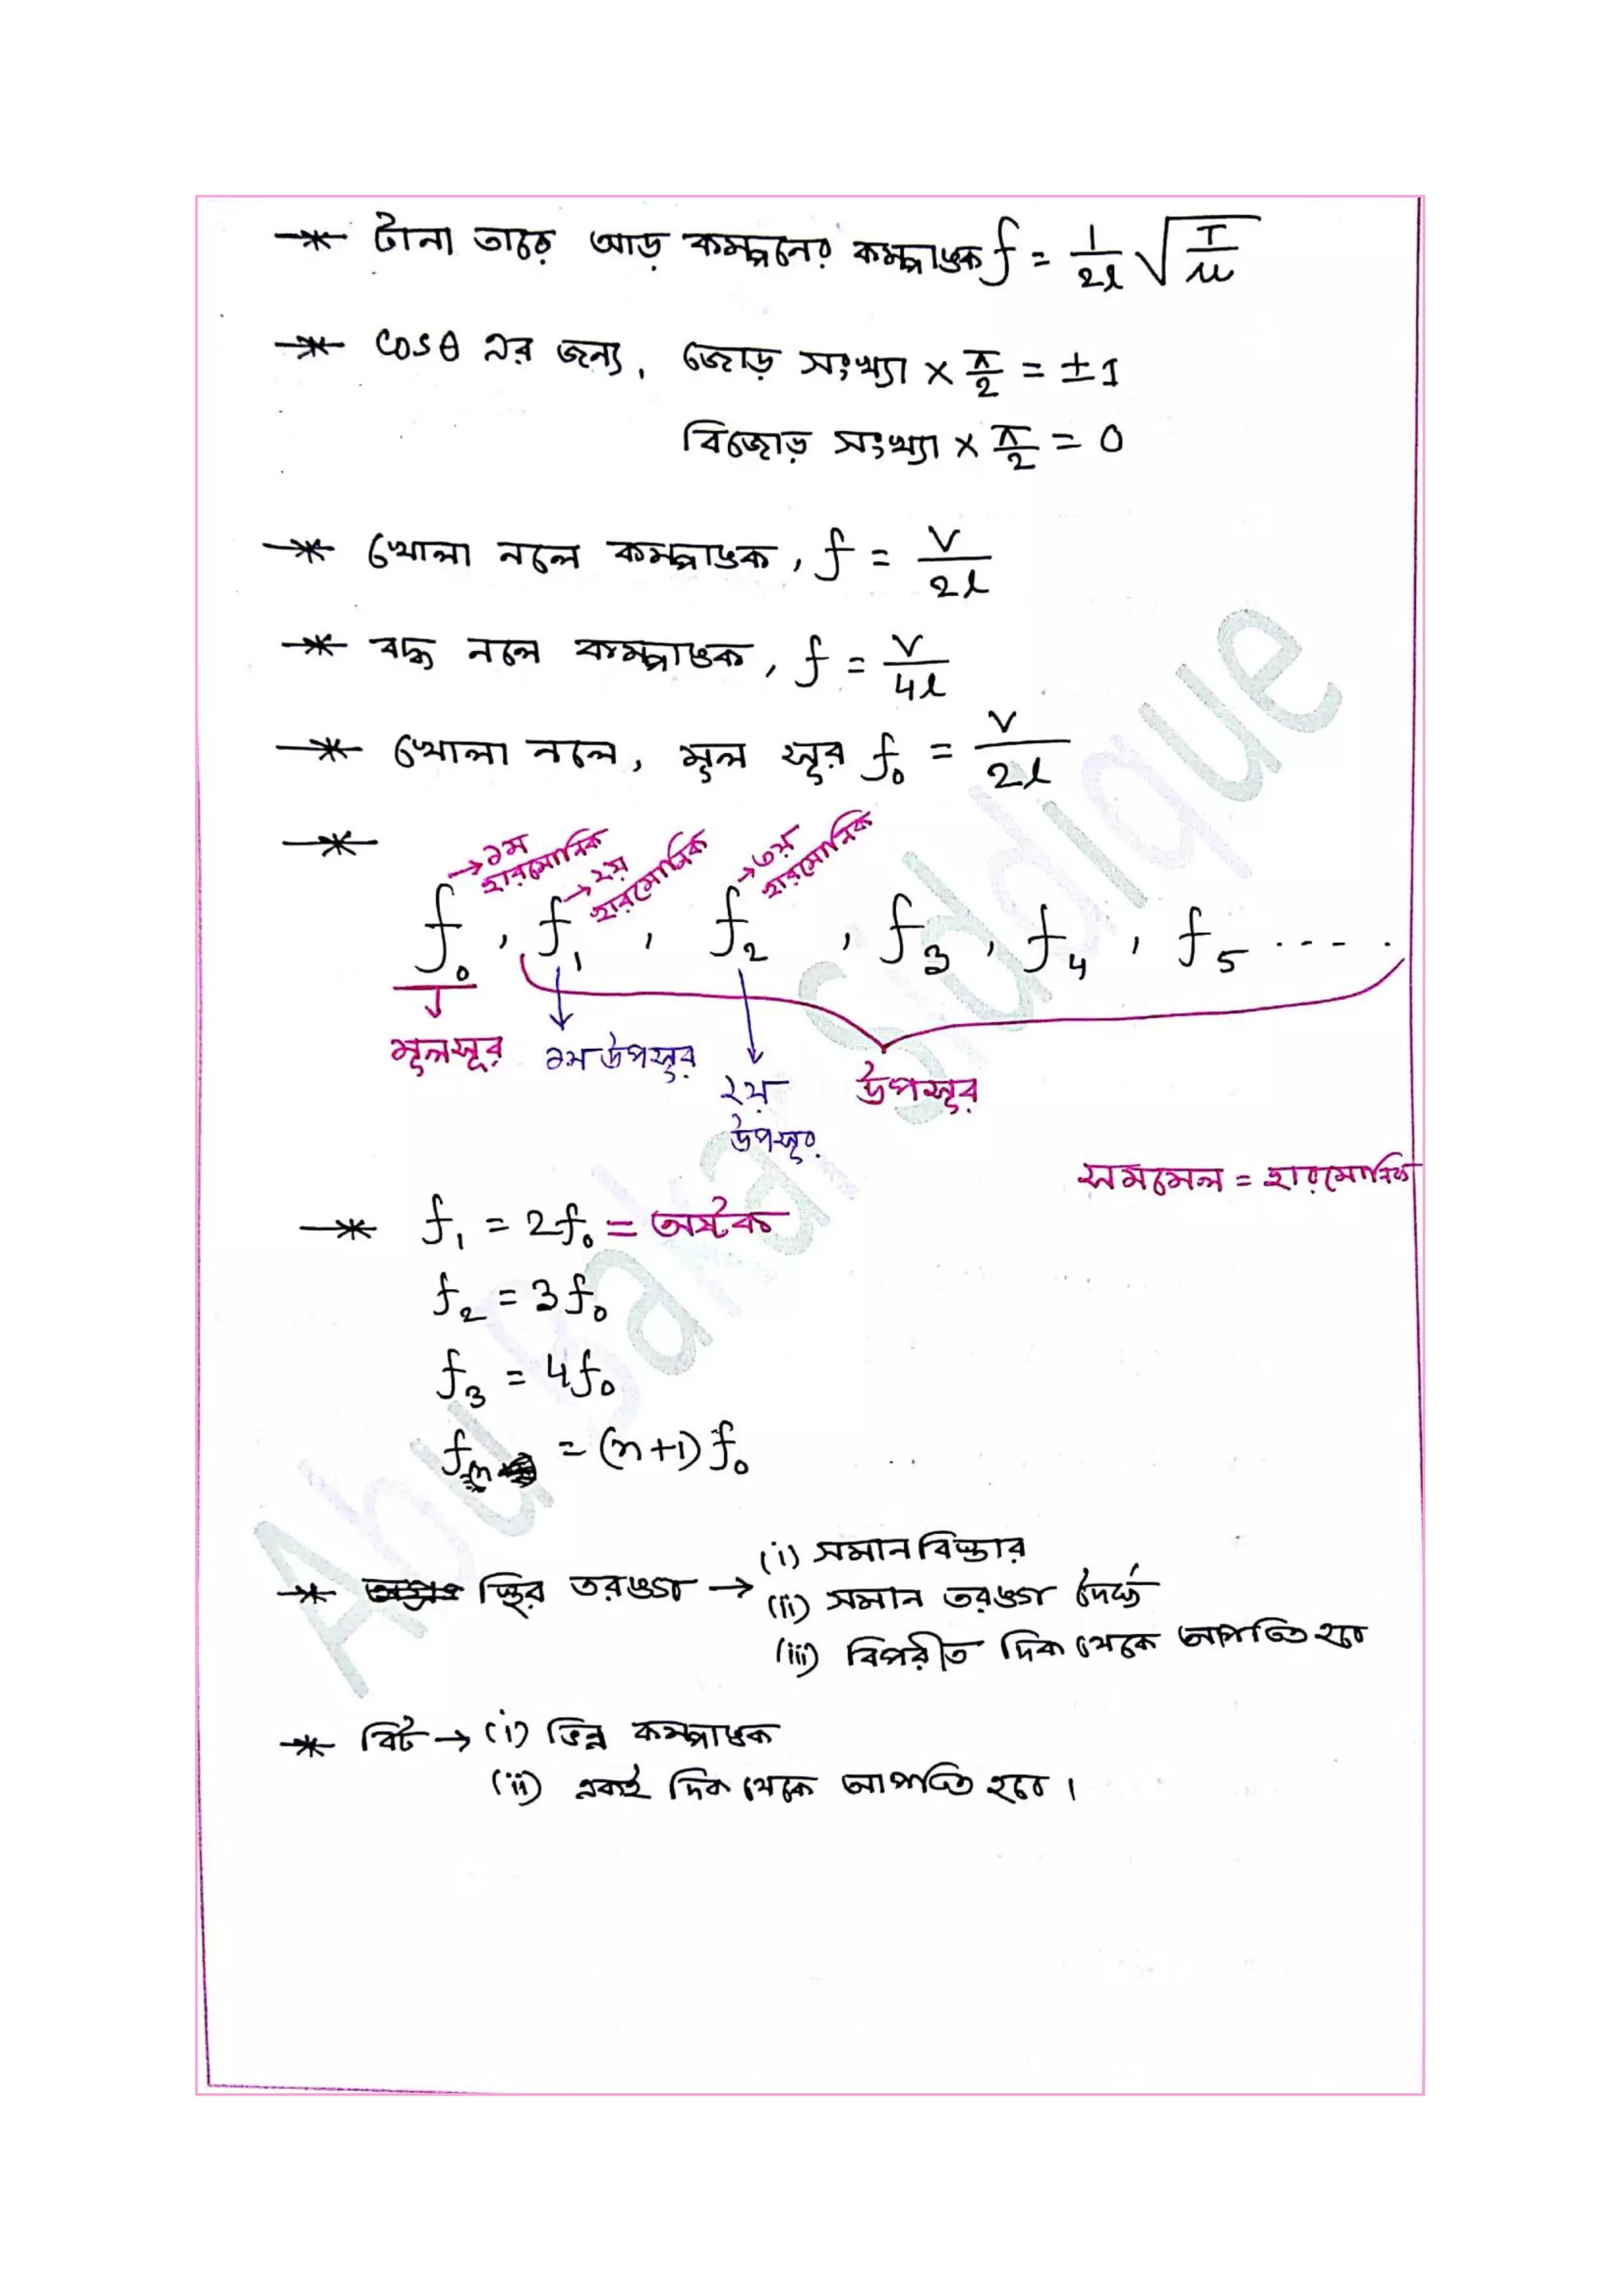 * টানা তারে আড় কম্পনের কম্পাঙ্ক f = 1/2l √(T/μ)
* cosθ এর জন্য, জোড় সংখ্যা × π/2 = ±1
বিজোড় সংখ্যা × π/2 = 0
* খোলা নলে কম্পাঙ্ক, f = v/2l
* বদ্ধ নলে কম্পাঙ্ক, f = v/4l
* খোলা নলে, মূল সূর f₀ = v/2l
*
→ ১ম হারমোনিক → ২য় হারমোনিক → ৩য় হারমোনিক
f₀, f₁, f₂, f₃, f₄, f₅ ....
মূলসূর ১ম উপসূর ২য় উপসূর উপসূর
সমমেল = হারমোনিক
* f₁ = 2f₀ = অষ্টক
f₂ = 3f₀
f₃ = 4f₀
fₙ = (n+1) f₀
* স্থির তরঙ্গ → (i) সমান বিস্তার
(ii) সমান তরঙ্গ দৈর্ঘ্য
(iii) বিপরীত দিক থেকে আপতিত হবে
* বিট → (i) ভিন্ন কম্পাঙ্ক
(ii) একই দিক থেকে আপতিত হবে।
Abu Bakar Siddique